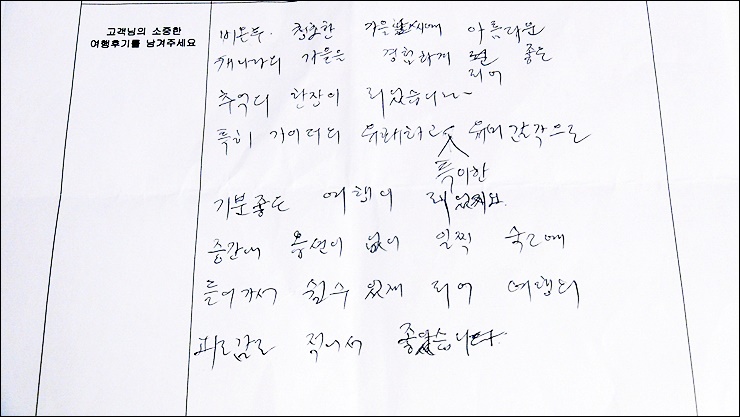 고객님의 소중한
여행후기를 남겨주세요
비온후. 청명한 가을날씨에 아름다운
캐나다의 가을을 경험하게 되어 좋은
추억의 한장이 되었습니다~
특히 가이더의 유쾌하고 특이한 유머 감각으로
기분좋은 여행이 되었지요.
중간에 옵션이 없어 일찍 숙소에
들어가서 쉴수 있게 되어 여행의
피로감도 적어서 좋았습니다.